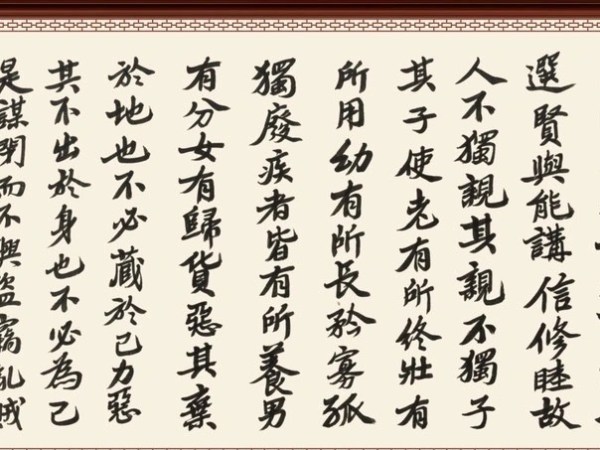 選賢與能講信修睦故
人不獨親其親不獨子
其子使老有所終壯有
所用幼有所長矜寡孤
獨廢疾者皆有所養男
有分女有歸貨惡其棄
於地也不必藏於己力惡
其不出於身也不必為己
是謀閉而不興盜竊乱賊